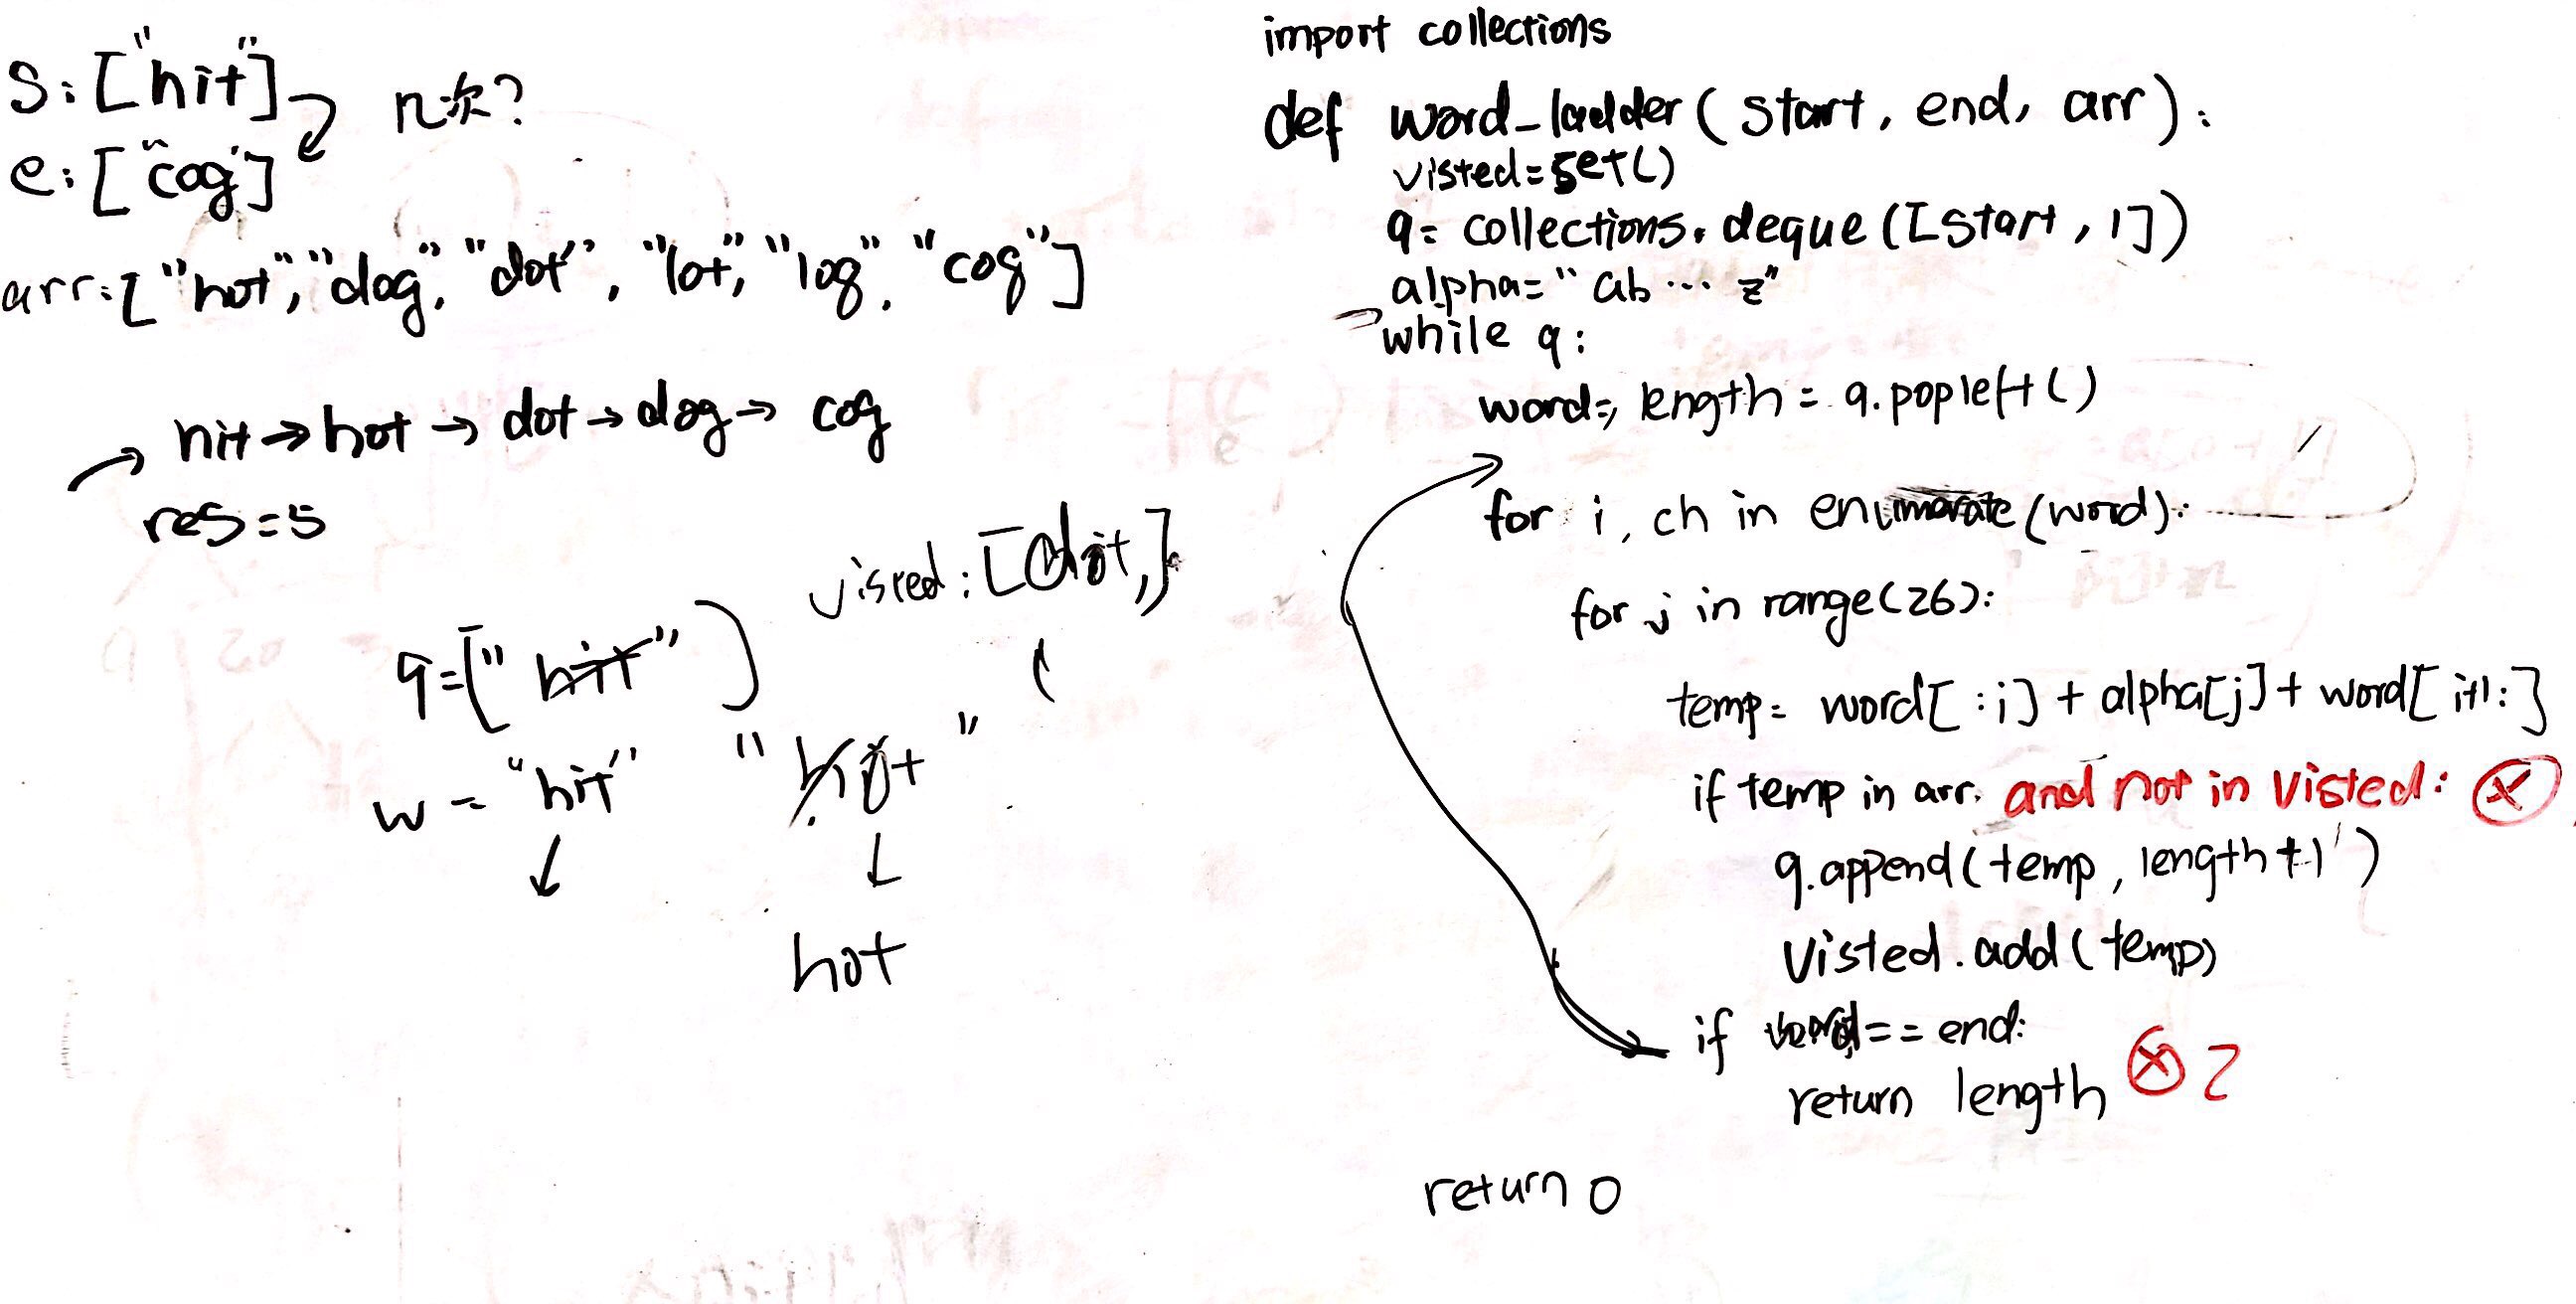 S: ["hit"]
n次?
e: ["cog"]
arr: ["hot", "dog", "dot", "lot", "log", "cog"]
hit → hot → dot → dog → cog
res = 5
visted: [dot,]
q = ["hit"]
w = "hit" "hot"
hot
import collections
def word_ladder(start, end, arr):
visted = set()
q = collections.deque([start, 1])
alpha = "ab ... z"
while q:
word, length = q.popleft()
for i, ch in enumerate(word):
for j in range(26):
temp = word[:i] + alpha[j] + word[i+1:]
if temp in arr. and not in visted: ⓧ
q.append(temp, length+1)
visted.add(temp)
if word == end:
return length ⓧ 2
return 0